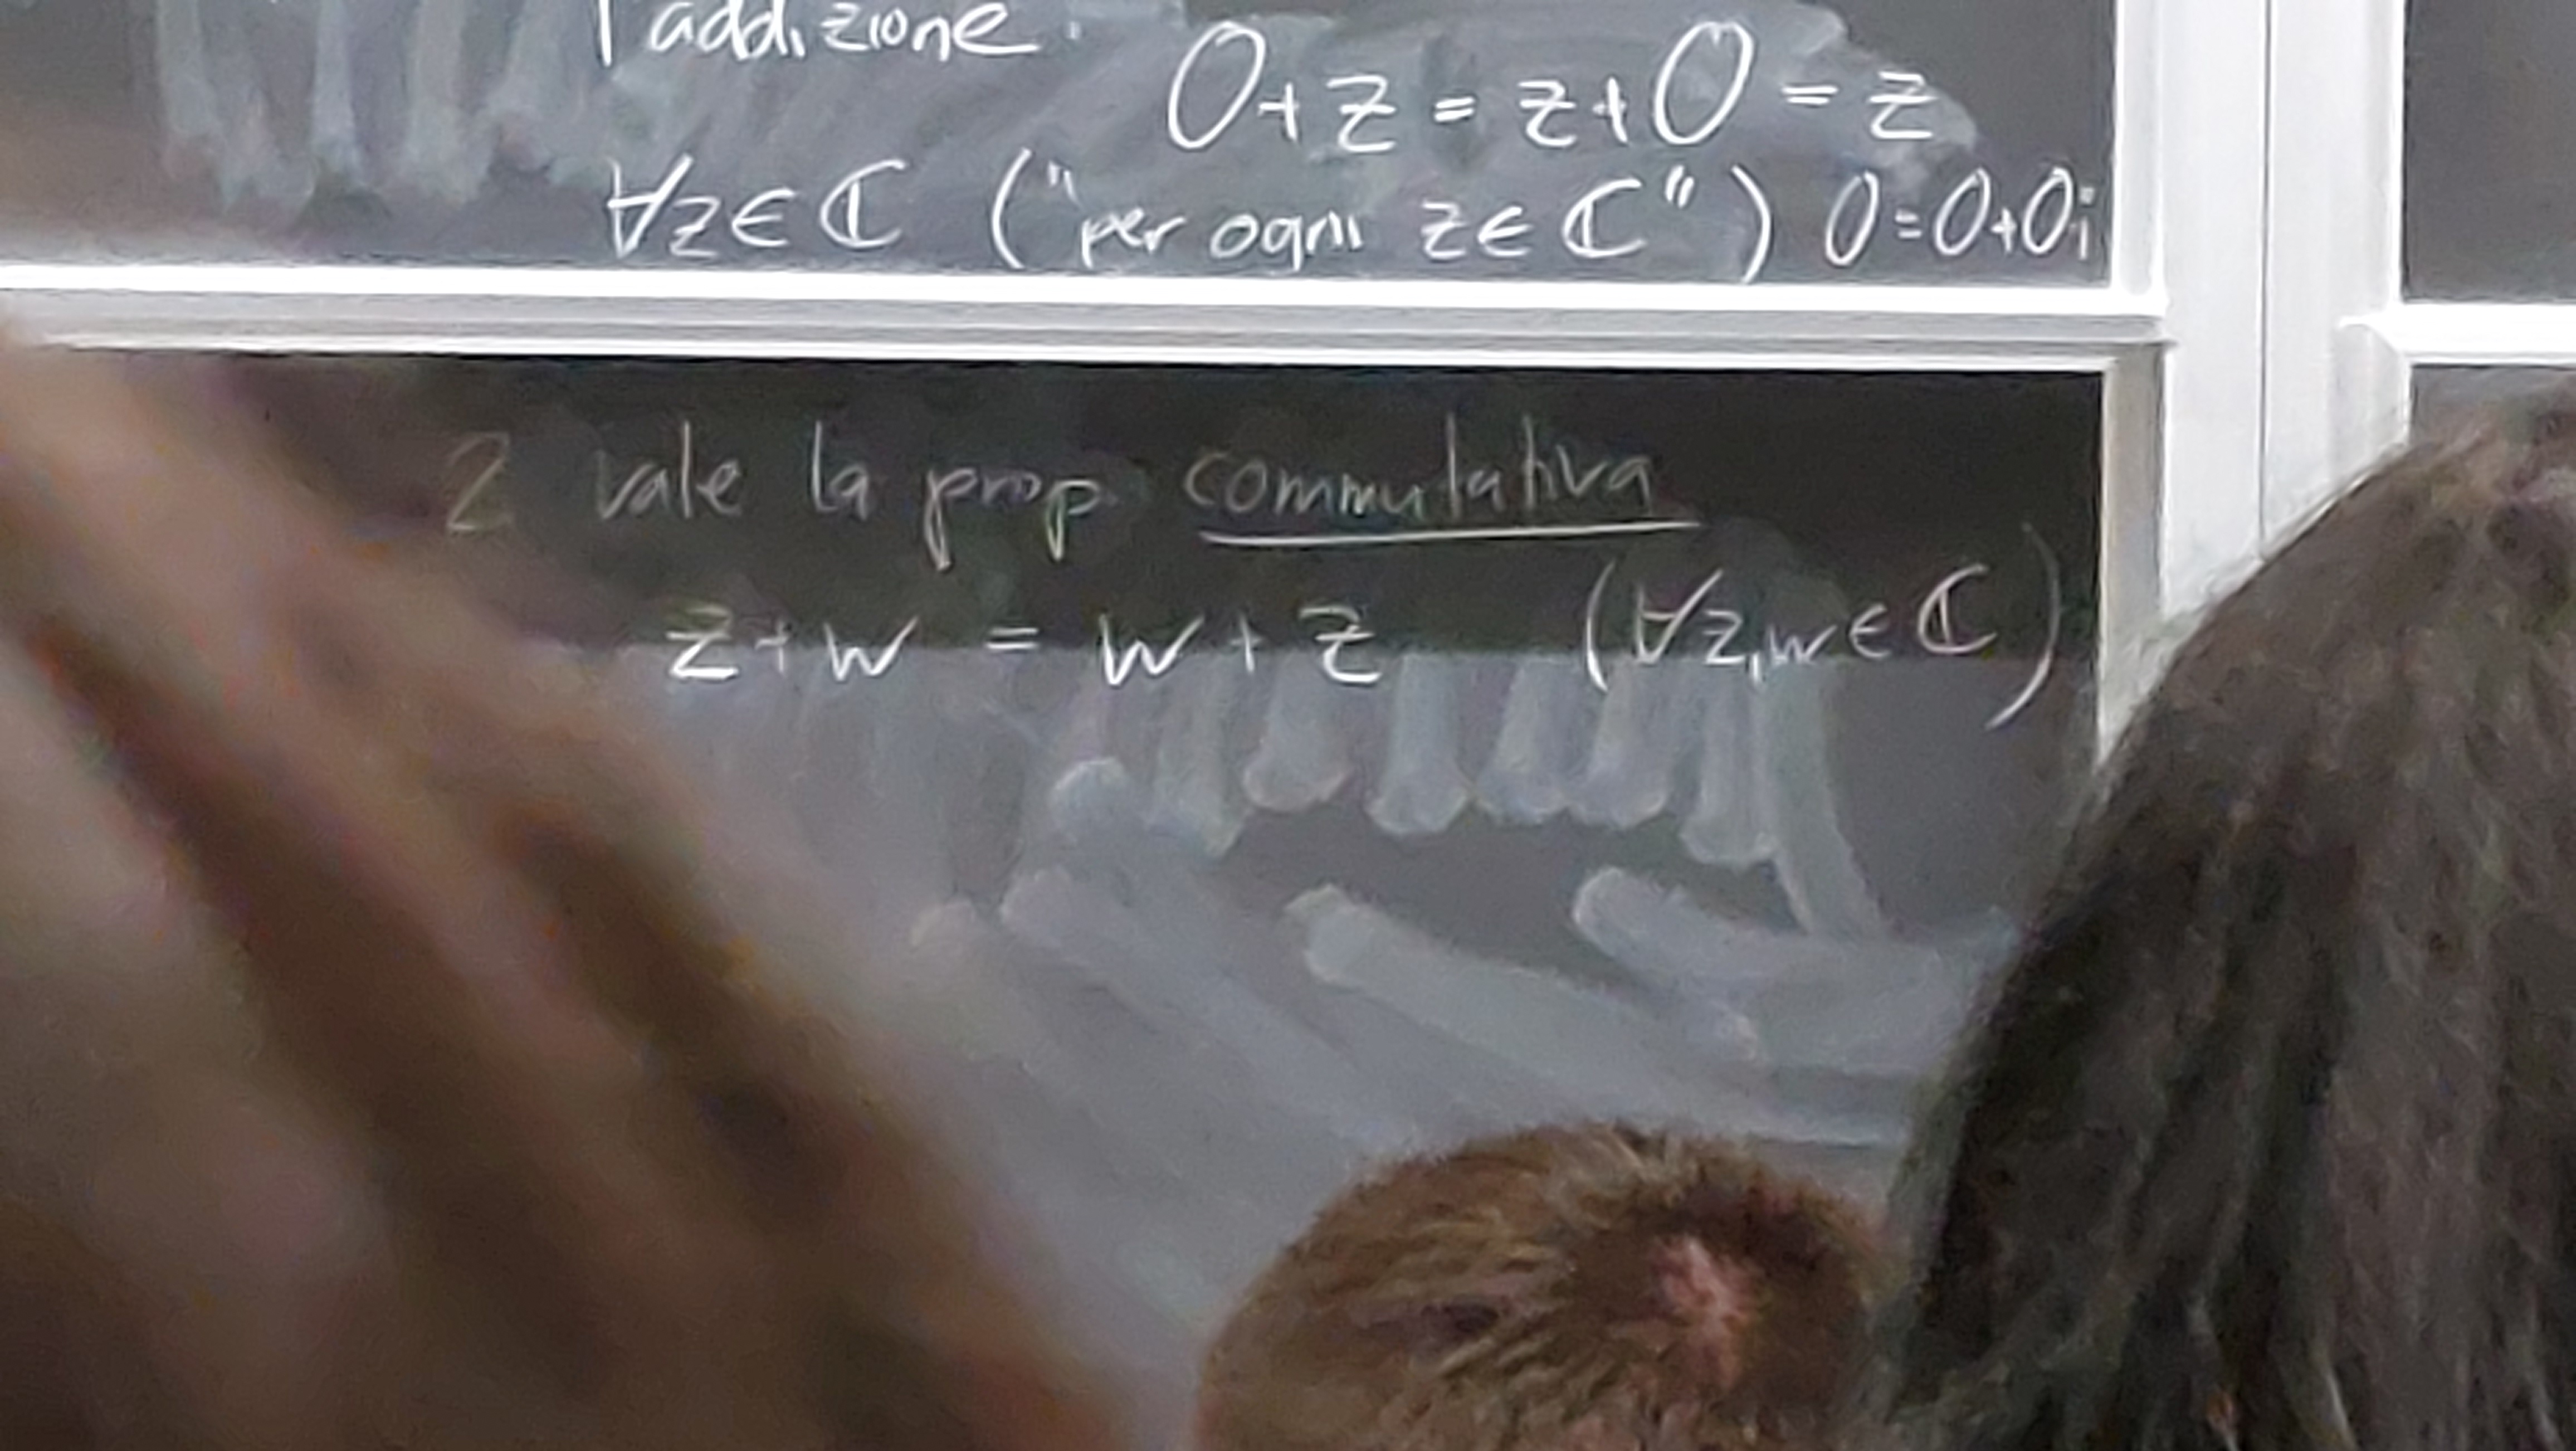 l'addizione.
0+z = z+0 = z
∀z∈ℂ ("per ogni z∈ℂ") 0=0+0i
2 vale la prop. commutativa
z+w = w+z (∀z,w∈ℂ)